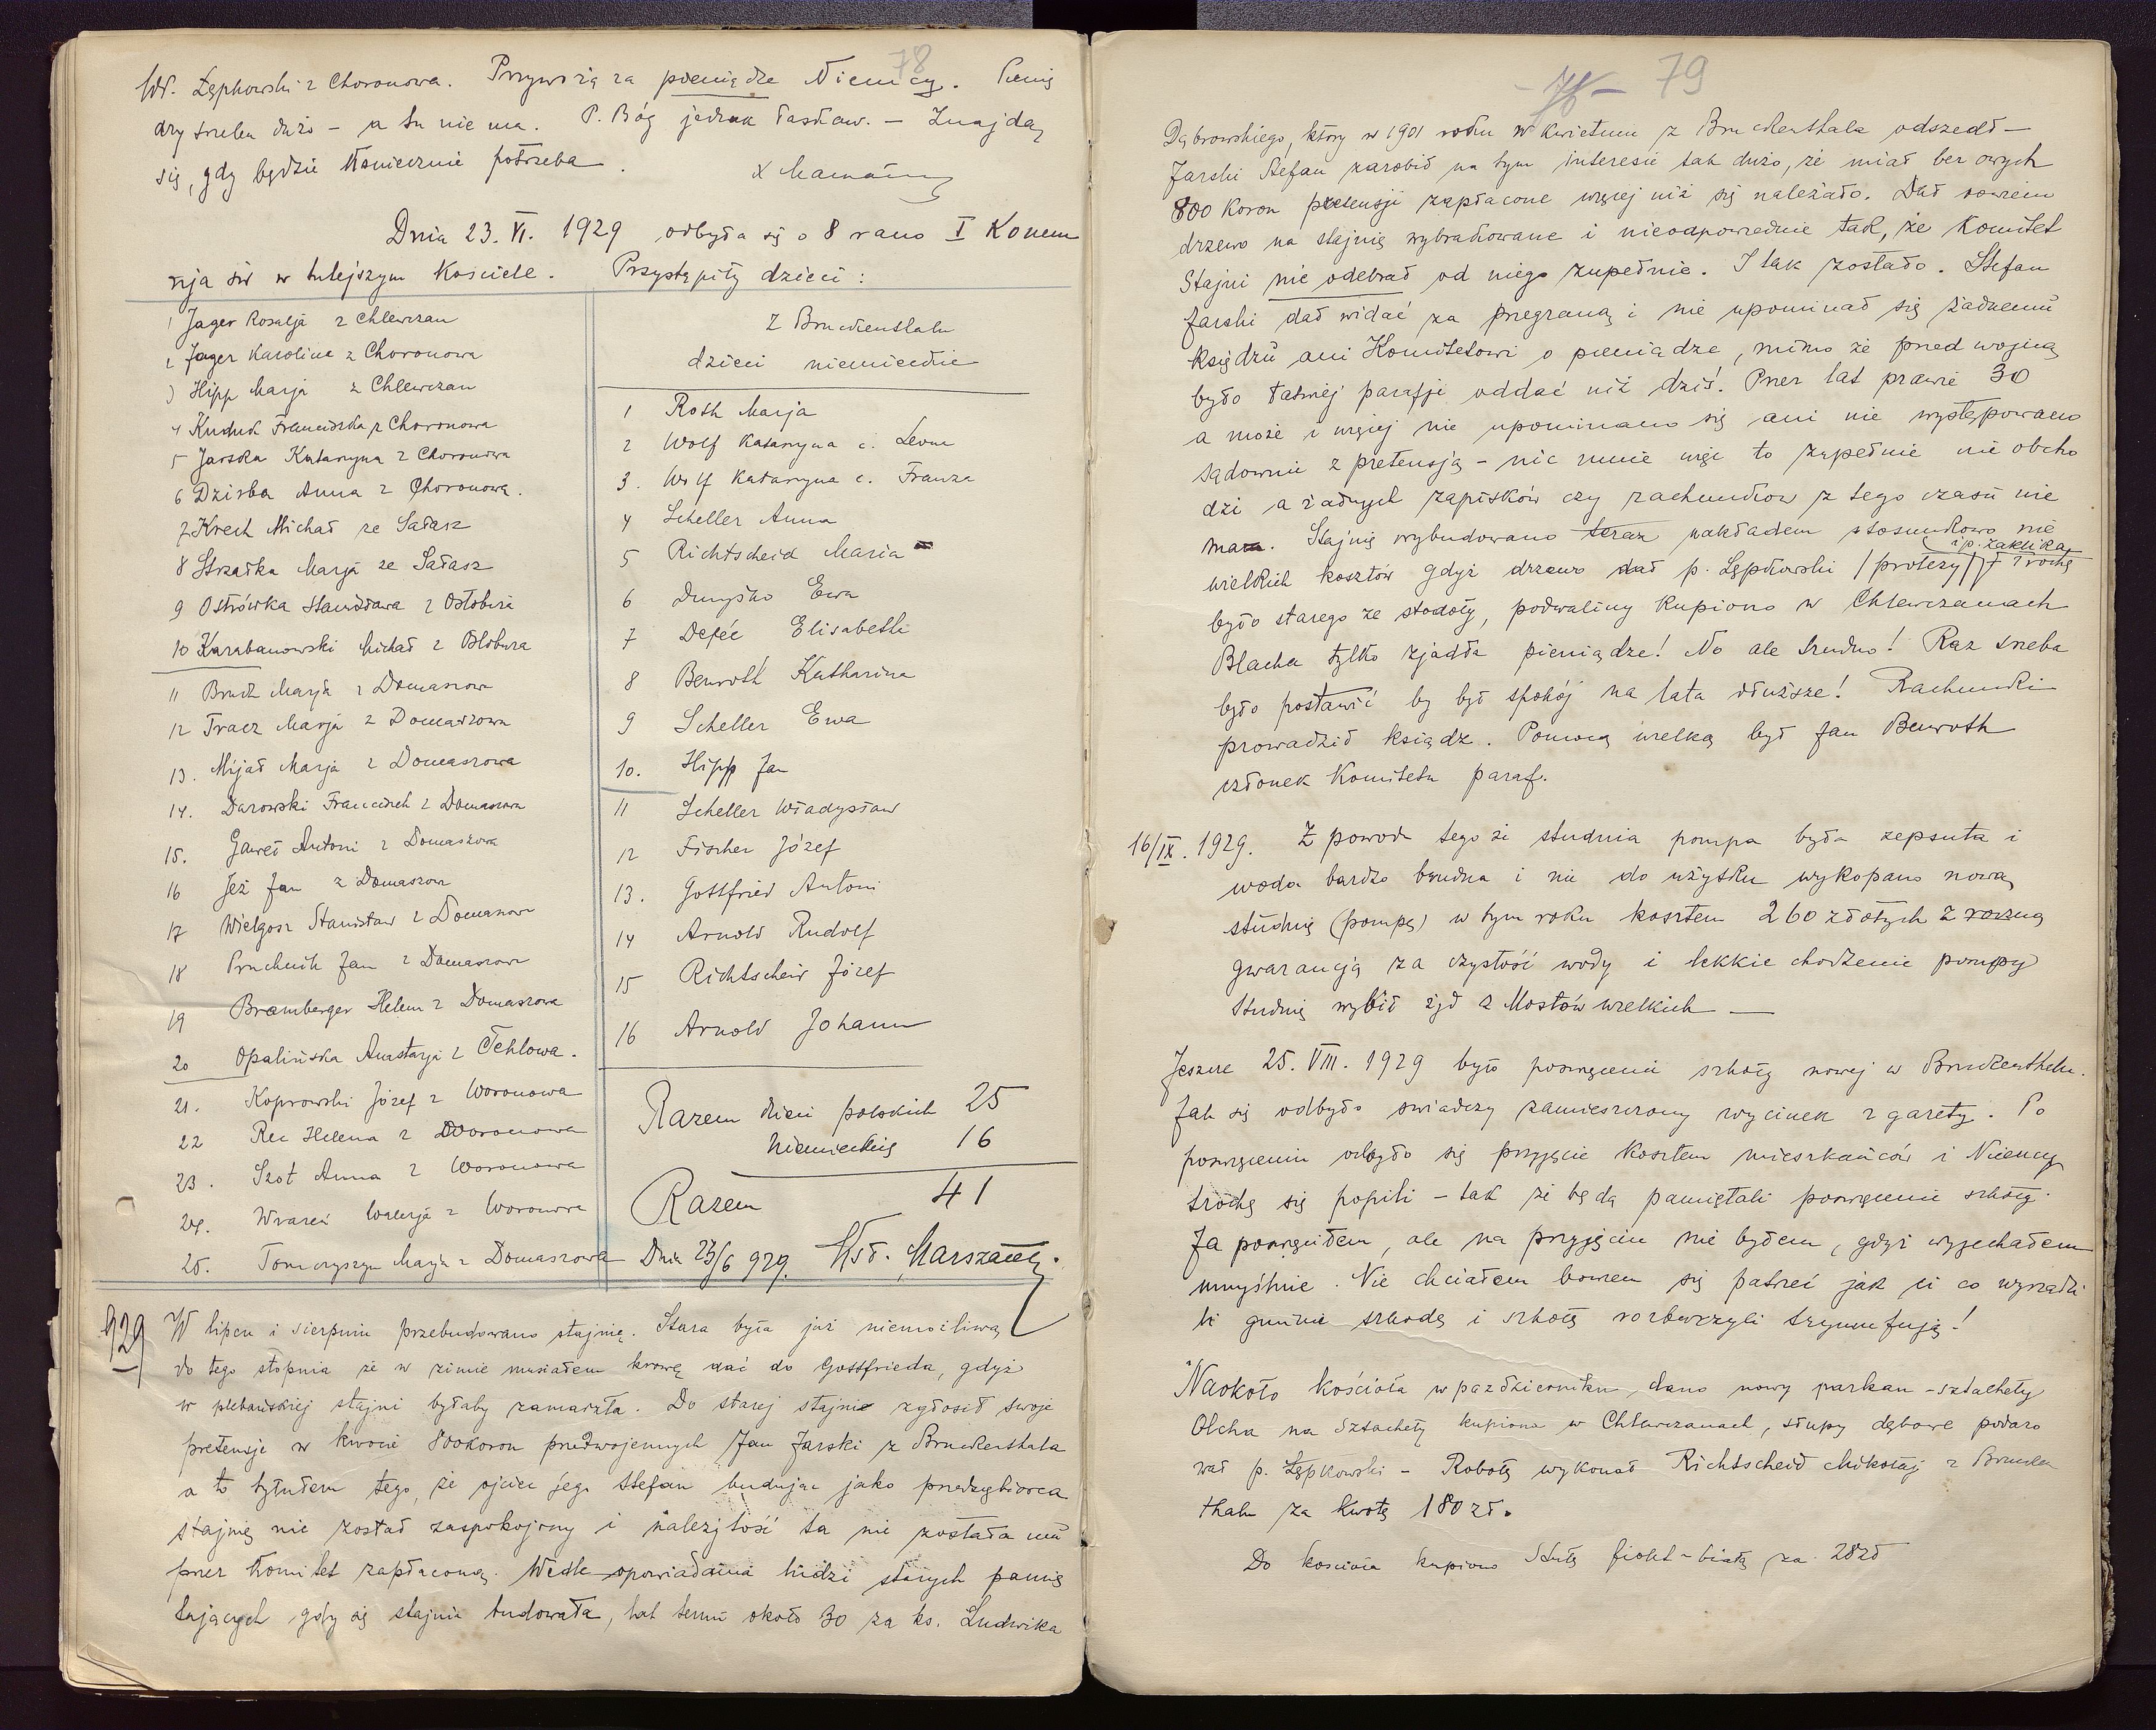 78
Wł. Łępkowski z Choronowa. Przywożą za pieniądze Niemcy. Pienię
dzy trzeba dużo – a tu nie ma. P. Bóg jednak łaskaw. – Znajdą
się, gdy będzie koniecznie potrzeba.
Dnia 23. VI. 1929 odbyła się o 8 rano I Komun
nja św w tutejszym Kościele. Przystąpiły dzieci:
1 Jager Rozalja z Chlewczan
2 Jager Karolina z Choronowa
3 Hipp Marja z Chlewczan
4 Kuduk Franciszka z Choronowa
5 Jarska Katarzyna z Choronowa
6 Dziuba Anna z Choronowa.
7 Krech Michał ze Sałasz
8 Strzałka Marja ze Sałasz
9 Ostrówka Stanisława z Ostobuża
10 Karabanowski Michał z Ostobuża
11 Bruch Marja z Domaszowa
12 Tracz Marja z Domaszowa
13. Mijał Marja z Domaszowa
14. Darowski Franciszek z Domaszowa
15. Gaweł Antoni z Domaszowa
16 Jeż Jan z Domaszowa
17 Wielgosz Stanisław z Domaszowa
18 Pruchnik Jan z Domaszowa
19 Bramberger Helena z Domaszowa
20 Opalińska Anastazja z Tehlowa.
21. Koprowski Józef z Woronowa
22 Rec Helena z Woronowa
23. Szot Anna z Woronowa
24. Walerja z Woronowa
25. Marja z Domaszowa
Z Bruckenthalu
dzieci niemieckie
1 Roth Marja
2 Wolf Katarzyna c. Leona
3. Wolf Katarzyna c. Franza
4 Scheller Anna
5 Richtscheid Maria
6 Ewa
7 Elisabeth
8 Benroth Katharina
9 Scheller Ewa
10. Hipp Jan
11 Scheller Władysław
12 Fischer Józef
13. Gottfried Antoni
14 Arnold Rudolf
15 Richtscheid Józef
16 Arnold Johann
Razem dzieci polskich 25
niemieckie 16
Razem 41
Dnia 23/6 929.
929
W lipcu i sierpniu przebudowano stajnię. Stara była już niemożliwą
do tego stopnia że w zimie musiałem krowę dać do Gottfrieda, gdyż
w plebańskiej stajni byłaby zamarzła. Do starej stajni zgłosił swoje
pretensje w kwocie 800 koron przedwojennych Jan Jarski z Bruckenthala
a to tytułem tego, że ojciec jego Stefan budując jako przedsiębiorca
stajnię nie został zaspokojony i należytość ta nie została mu
przez Komitet zapłaconą. Wedle opowiadania ludzi starych pamię
tających gdy się stajnia budowała, lat temu około 30 za ks. Ludwika
79
Dąbrowskiego, który w 1901 roku w kwietniu z Bruckenthala odszedł –
Jarski Stefan zarobił na tym interesie tak dużo, że miał bez owych
800 Koron pretensji zapłacone więcej niż się należało. Dał bowiem
drzewo na stajnię wybrakowane i nieodpowiednie tak, że Komitet
Stajni nie odebrał od niego zupełnie. I tak zostało. Stefan
Jarski dał widać za przegraną i nie upominał się żadnemu
księdzu ani Komitetowi o pieniądze, mimo że przed wojną
było łatwiej parafji oddać niż dziś. Przez lat prawie 30
a może i więcej nie upominano się ani nie występowano
sądownie z pretensją – nic mnie więc to zupełnie nie obcho
dzi a żadnych zapisków czy rachunków z tego czasu nie
mam. Stajnię wybudowano teraz nakładem stosunkowo nie
i p. Zaklika
wielkich kosztów gdyż drzewo dał p. Łępkowski /protezy/ Trochę
było starego ze stodoły, podwaliny kupiono w Chlewczanach
Blacha tylko zjadła pieniądze! No ale trudno! Raz trzeba
było postawić by był spokój na lata dłuższe! Rachunki
prowadził ksiądz. Pomocą wielką był Jan Benroth
członek Komitetu paraf.
16/IX. 1929. Z powodu tego że studnia pompa była zepsuta i
woda bardzo brudna i nie do użytku wykopano nową
studnię (pompę) w tym roku kosztem 260 złotych z roczną
gwarancją za czystość wody i lekkie chodzenie pompy
Studnię wybił żyd z Mostów wielkich —
Jeszcze 25. VIII. 1929 było poświęcenie szkoły nowej w Bruckenthalu.
Jak się odbyło świadczy zamieszczony wycinek z gazety. Po
poświęceniu odbyło się przyjęcie kosztem mieszkańców i Niemcy
trochę się popili – tak że będą pamiętali poświęcenie szkoły.
Ja poświęciłem, ale na przyjęciu nie byłem, gdyż wyjechałem
umyślnie. Nie chciałem bowiem się patrzeć jak ci co wyrządzi
li gminie szkodę i szkołę tryumfują!
Naokoło kościoła w październiku dano nowy parkan – sztachety
Olcha na sztachety kupiona w Chlewczanach, słupy dębowe podaro
wał p. Łępkowski – Robotę wykonał Richtscheid Mikołaj z Brucken
thalu za kwotę 180 zł.
Do kościoła kupiono Stułę fiolet – białą za 28 zł